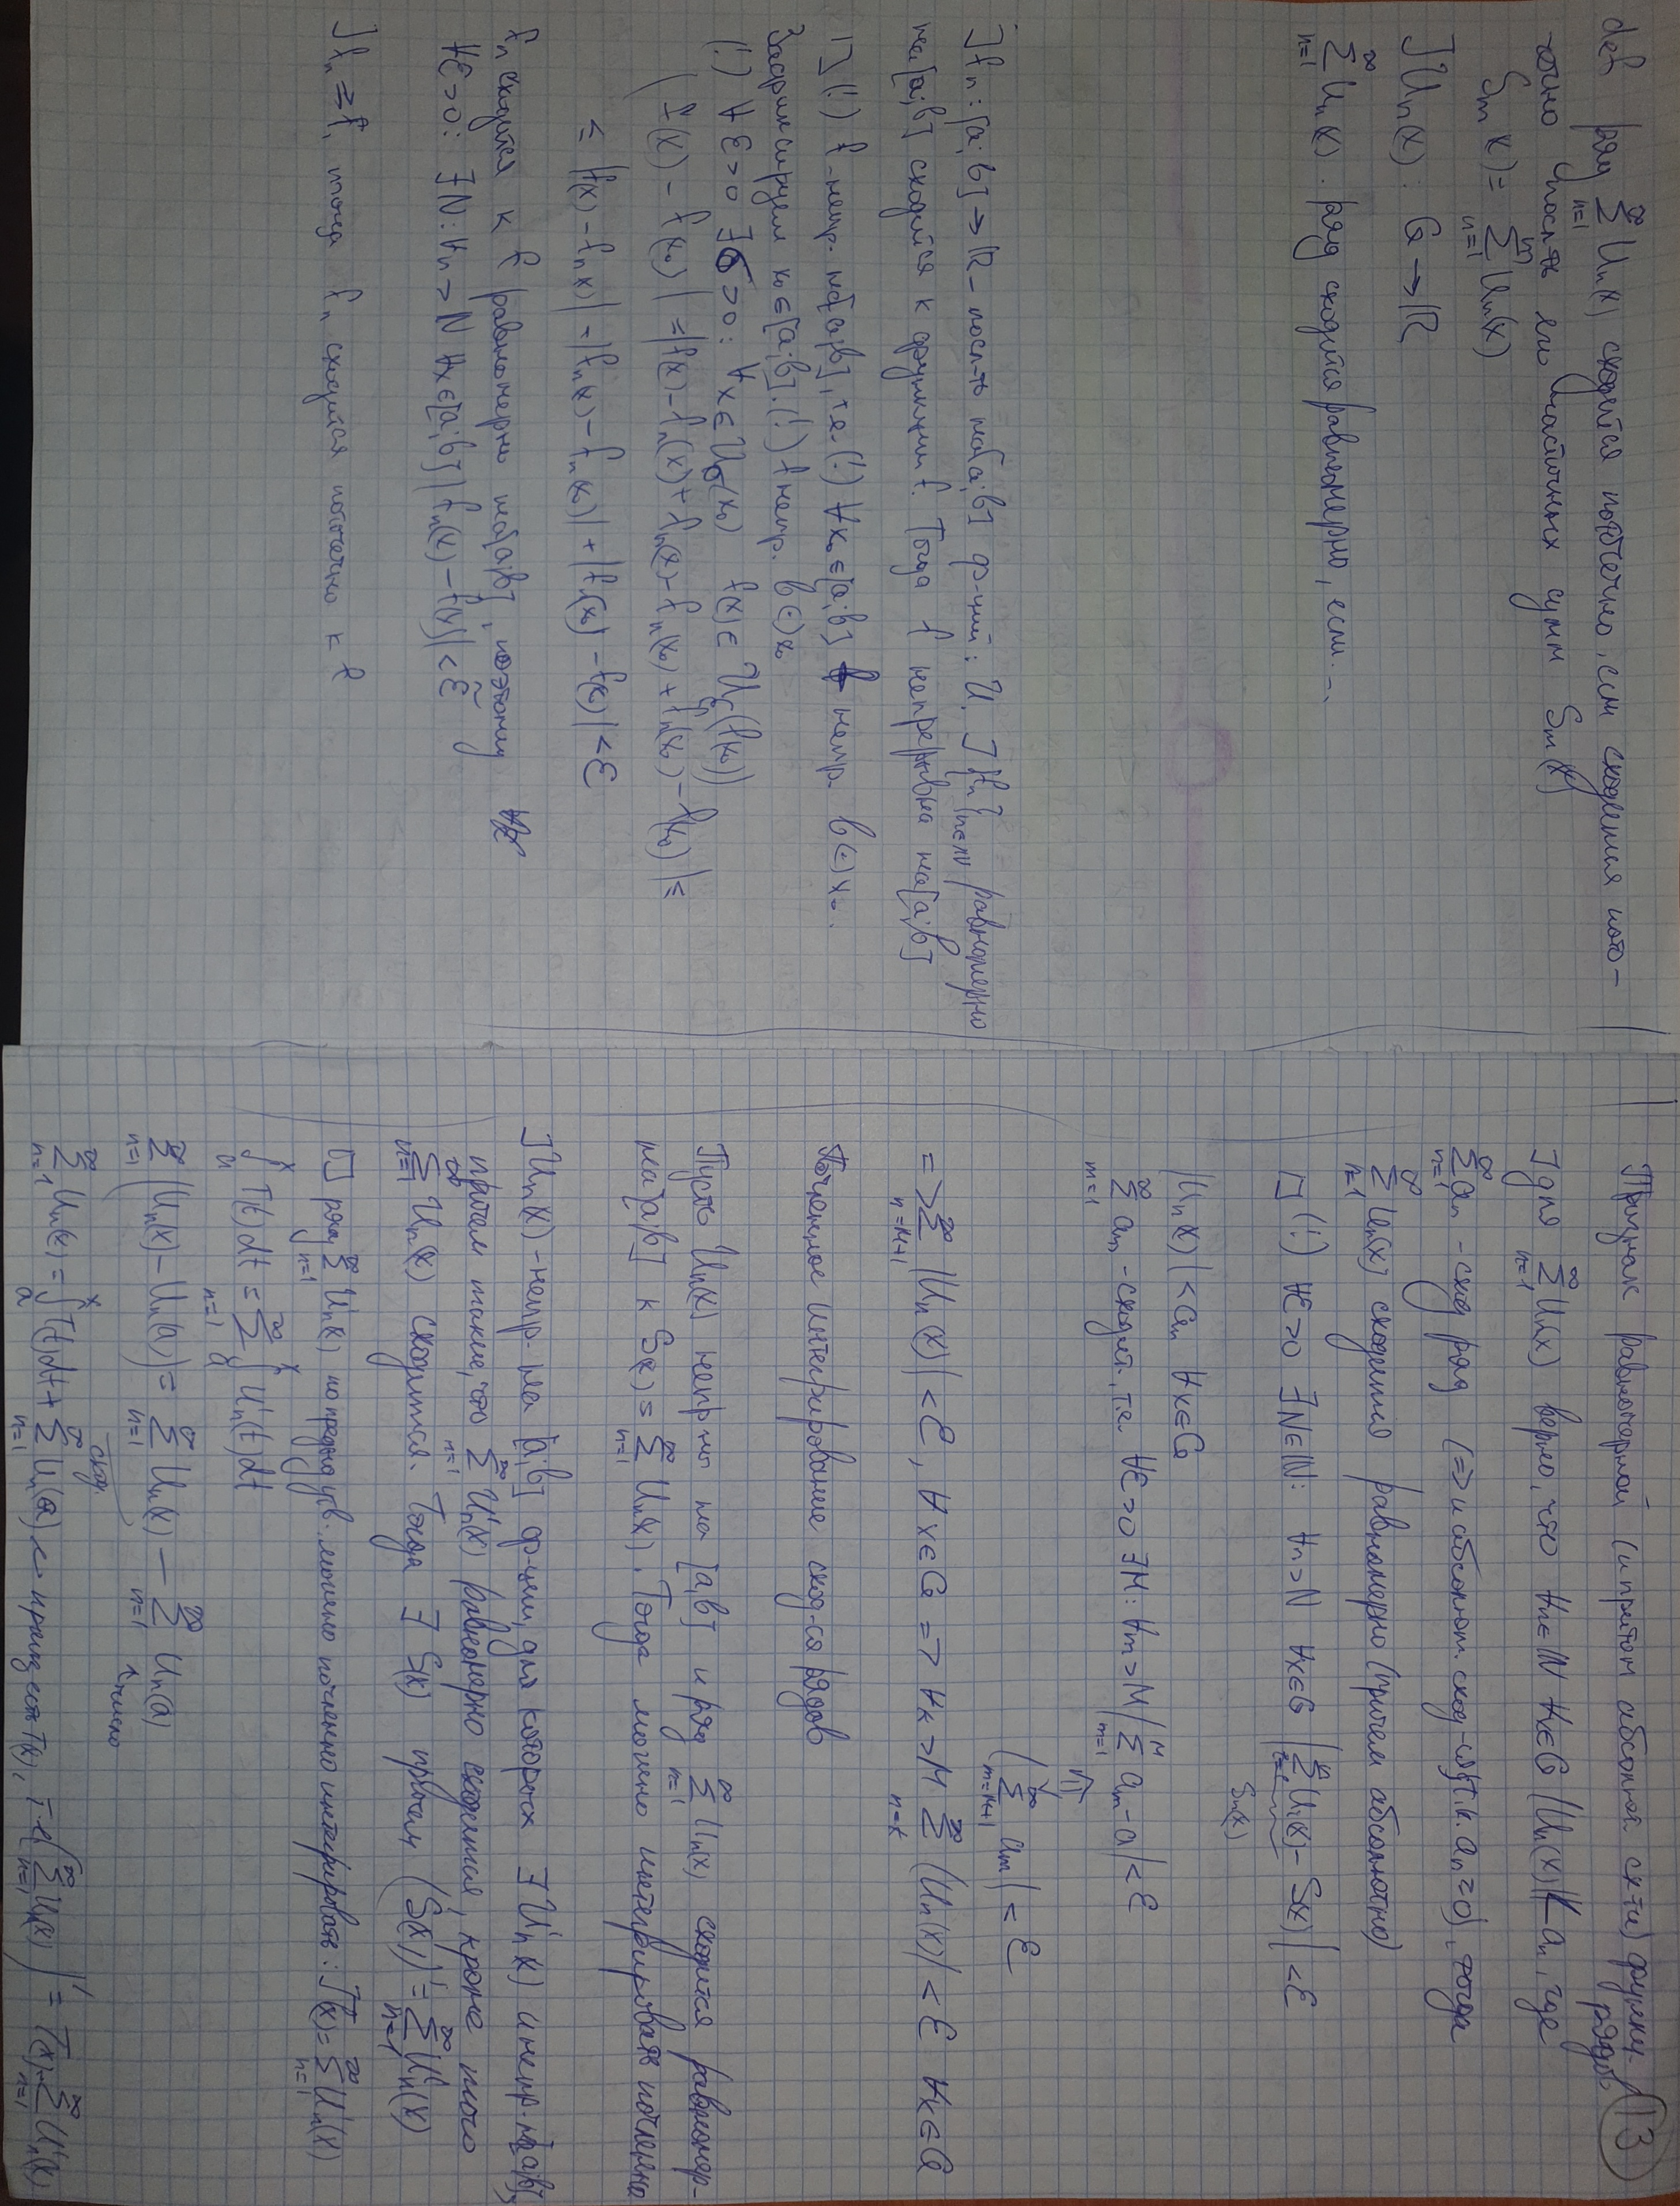 def ряд ∑_{n=1}^{∞} Uₙ(x) сходится поточечно, если сходения пото-
чечно посл-ть его частичных сумм Sₘ(x)
Sₘ(x) = ∑_{n=1}^{m} Uₙ(x)
] Uₙ(x) : G → ℝ
∑_{n=1}^{∞} Uₙ(x). Ряд сходится равномерно, если -
] fₙ : [a;b] → ℝ - посл-ть на [a;b] ф-ций: U. ] {fₙ} равномерно
на [a;b] сходится к функции f. Тогда f непрерывна на [a;b]
□ (!) f-непр. на [a;b], т.е. (!) ∀x₀ ∈ [a;b] f непр. в (·) x₀.
Зафиксируем x₀ ∈ [a;b]. (!) f непр. в (·) x₀
(!) ∀ε>0 ∃δ>0: ∀x ∈ U_δ(x₀) f(x) ∈ U_ε(f(x₀))
|f(x) - f(x₀)| = |f(x) - fₙ(x) + fₙ(x) - fₙ(x₀) + fₙ(x₀) - f(x₀)| ≤
≤ |f(x) - fₙ(x)| - |fₙ(x) - fₙ(x₀)| + |f(x₀) - f(x)| < ε
fₙ сходится к f равномерно на [a;b], поэтому
∀ε̃>0: ∃N: ∀n > N ∀x∈[a;b] |fₙ(x) - f(x)| < ε̃
] fₙ ⇉ f, тогда fₙ сходится поточечно к f
13
Признак равномерной (и притом абсолютной сх-ти) функц.
рядов
] для ∑_{n=1}^{∞} Uₙ(x) верно, что ∀n∈ℕ ∀x∈G |Uₙ(x)| ≤ aₙ, где
∑_{n=1}^{∞} aₙ - сход ряд (=> и абсолют. сход-ся, т.к. aₙ ≥ 0), тогда
∑_{n=1}^{∞} Uₙ(x) сходится равномерно (причем абсолютно)
□ (!) ∀ε>0 ∃N∈ℕ: ∀n>N ∀x∈G |∑ Uᵢ(x) - S(x)| < ε
Sₙ(x)
|Uₙ(x)| < aₙ ∀x∈G
∑_{m=1}^{∞} aₘ - сходит, т.е. ∀ε>0 ∃M: ∀m>M |∑_{m=1}^{M} aₘ - a| < ε
|∑_{m=M+1}^{∞} aₘ| < ε
=> ∑_{n=M+1}^{∞} |Uₙ(x)| < ε, ∀x∈G => ∀k>M ∑_{n=k}^{∞} |Uₙ(x)| < ε ∀x∈G
Почленное интегрирование сход-ся рядов
Пусть Uₙ(x) непр-ны на [a;b] и ряд ∑_{n=1}^{∞} Uₙ(x) сходится равномер-
на [a;b] к S(x) = ∑_{n=1}^{∞} Uₙ(x). Тогда можно интегрировать почленно
] Uₙ(x) - непр. на [a;b] ф-ции, для которых ∃ U'ₙ(x) и непр. на [a;b],
причем такие, что ∑_{n=1}^{∞} U'ₙ(x) равномерно сходится, кроме того
∑_{n=1}^{∞} Uₙ(x) сходится. Тогда ∃ S(x) причем (S(x))' = ∑_{n=1}^{∞} U'ₙ(x)
□ ряд ∑_{n=1}^{∞} U'ₙ(x) по пред утв. можно почленно интегрировать: T(x) = ∑_{n=1}^{∞} U'ₙ(x)
∫_{a}^{x} T(t)dt = ∑_{n=1}^{∞} ∫_{a}^{x} U'ₙ(t)dt
∑_{n=1}^{∞} (Uₙ(x) - Uₙ(a)) = ∑_{n=1}^{∞} Uₙ(x) - ∑_{n=1}^{∞} Uₙ(a)
число
сход.
∑_{n=1}^{∞} Uₙ(x) = ∫_{a}^{x} T(t)dt + ∑_{n=1}^{∞} Uₙ(a) T(x), т.е. (∑_{n=1}^{∞} Uₙ(x))' = T(x) = ∑_{n=1}^{∞} U'ₙ(x)